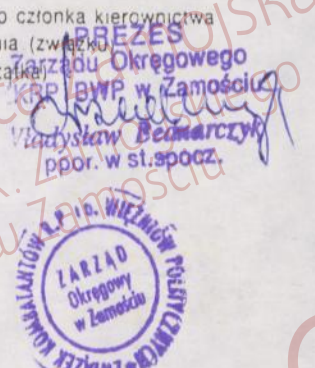 o członka kierownictwa
nia (związku,
PREZES
zątka)
Zarządu Okręgowego
KRP i BWP w Zamościu
Władysław Bednarczyk
ppor. w st.spocz.
ZWIĄZEK KOMBATANTÓW R.P. i B. WIĘŹNIÓW POLITYCZNYCH
ZARZĄD
Okręgowy
w Zamościu